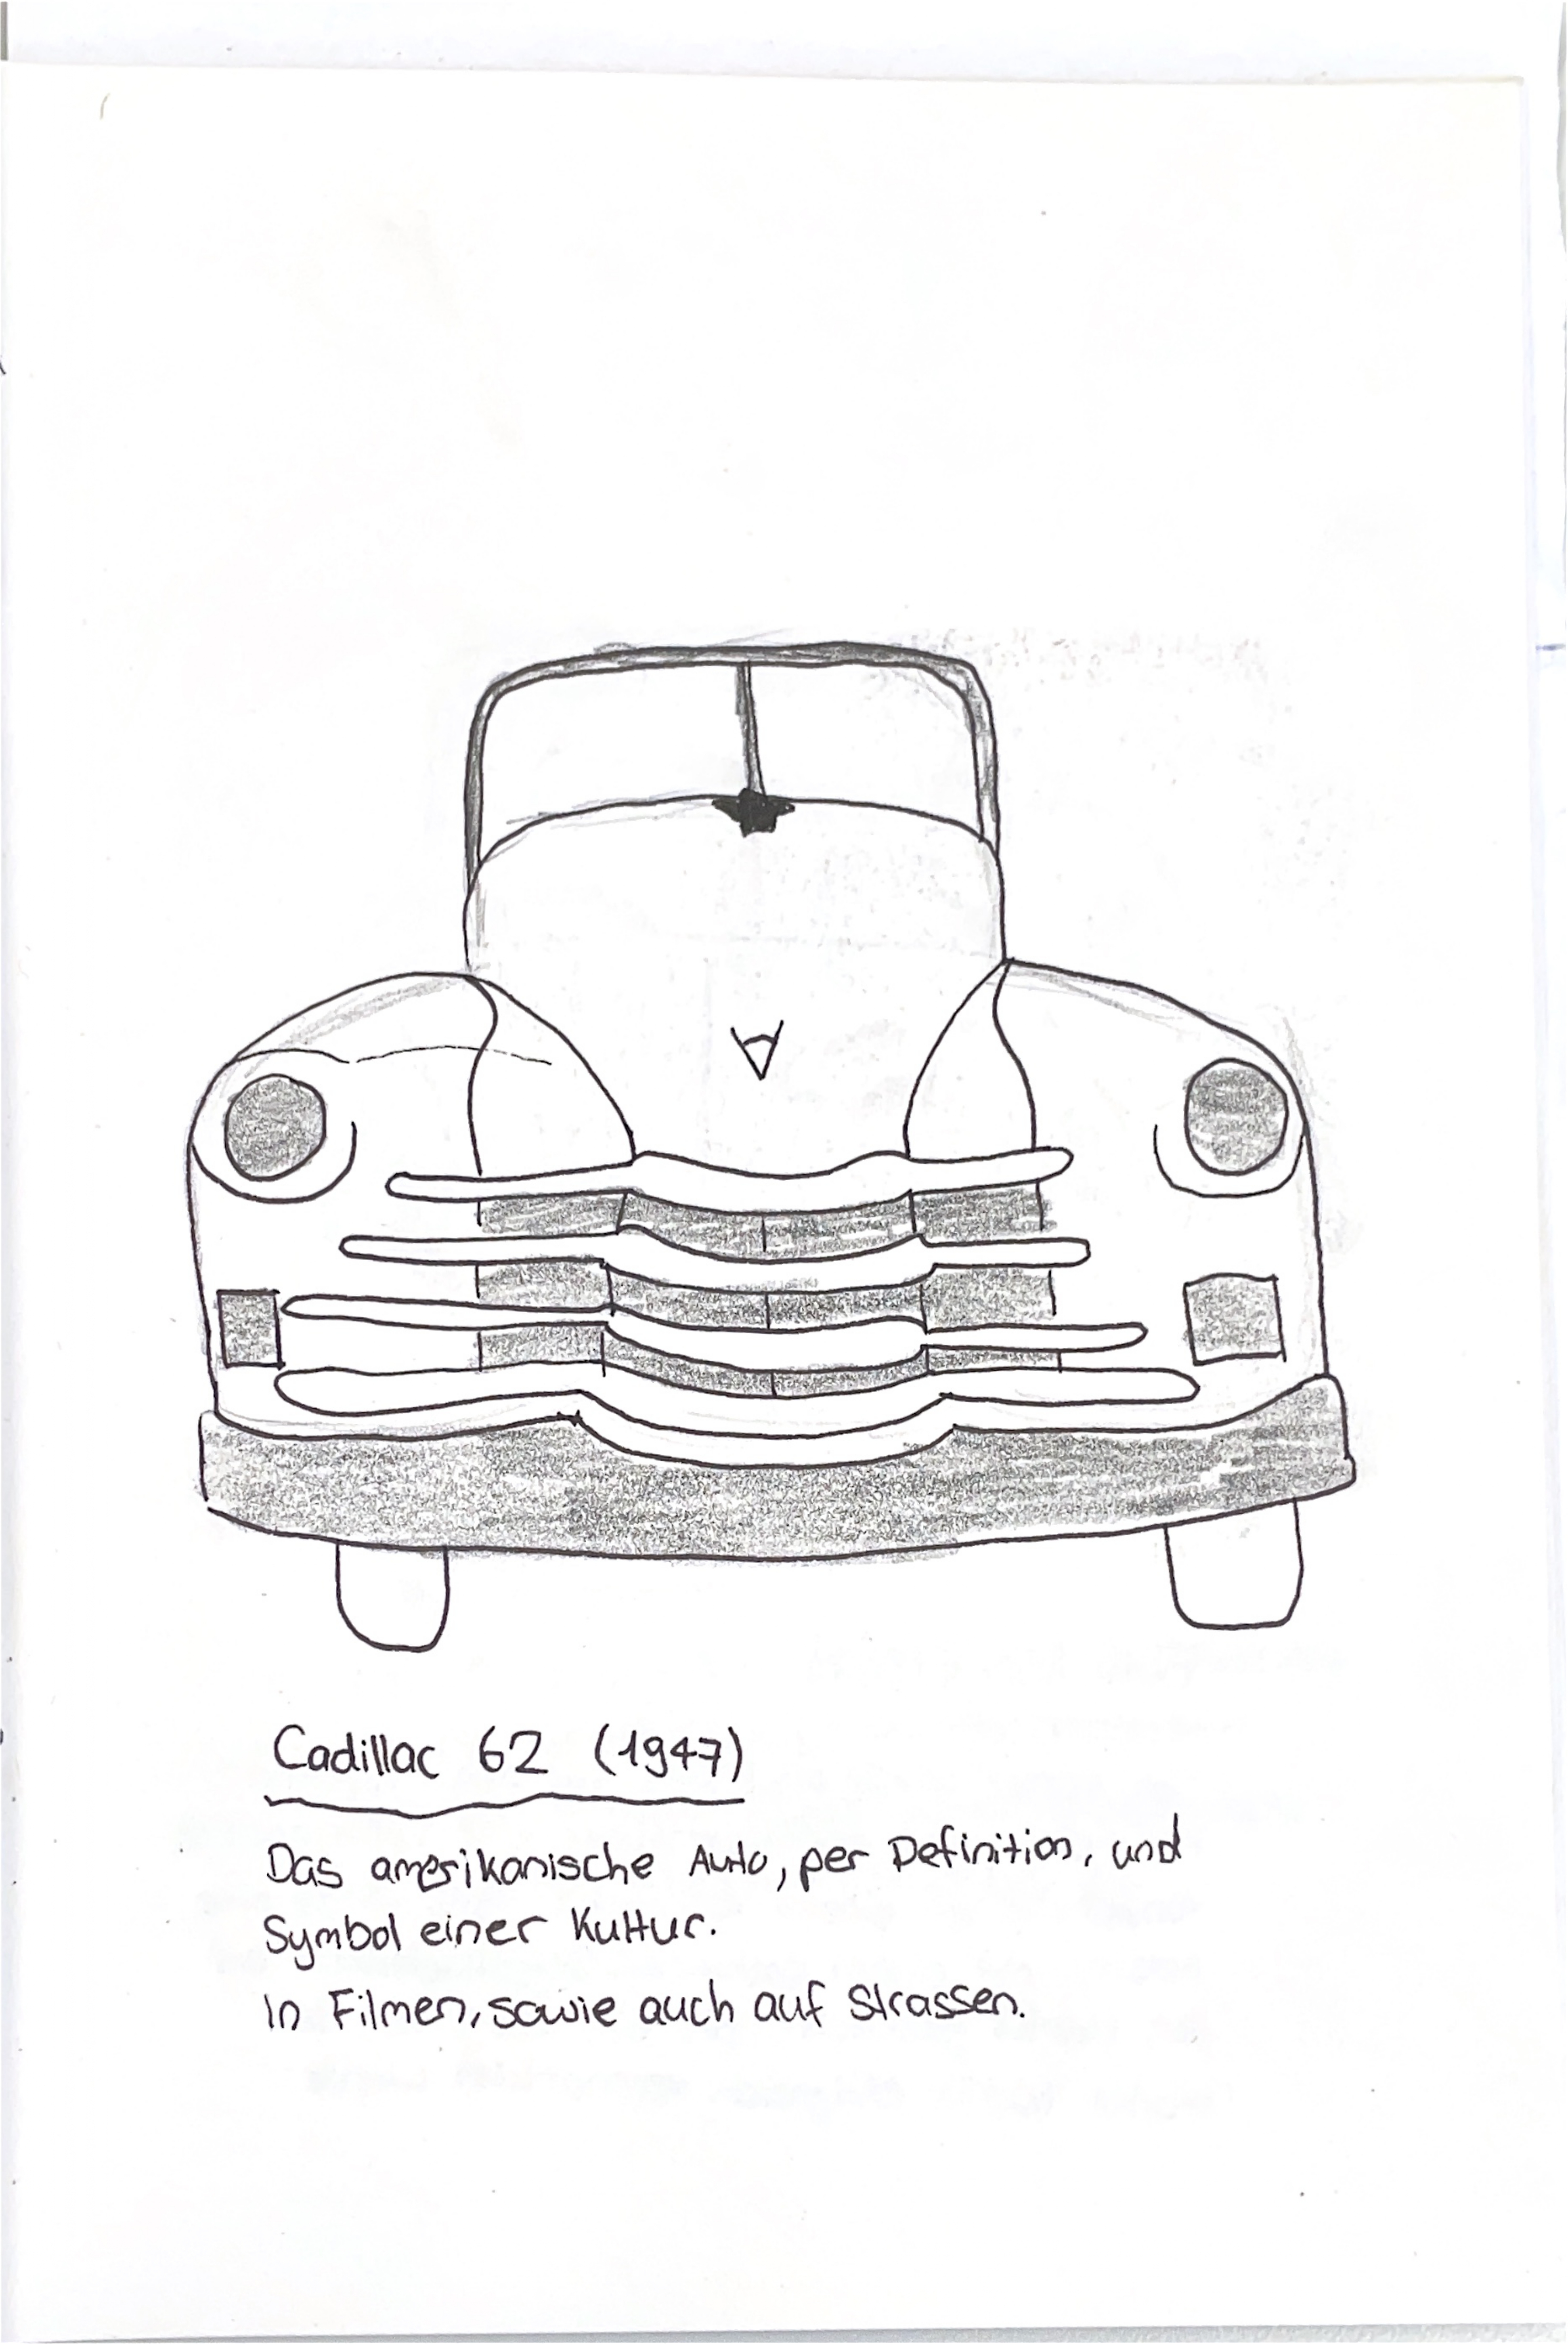 Cadillac 62 (1947)
Das amerikanische Auto, per Definition, und
Symbol einer Kultur.
In Filmen, sowie auch auf Strassen.